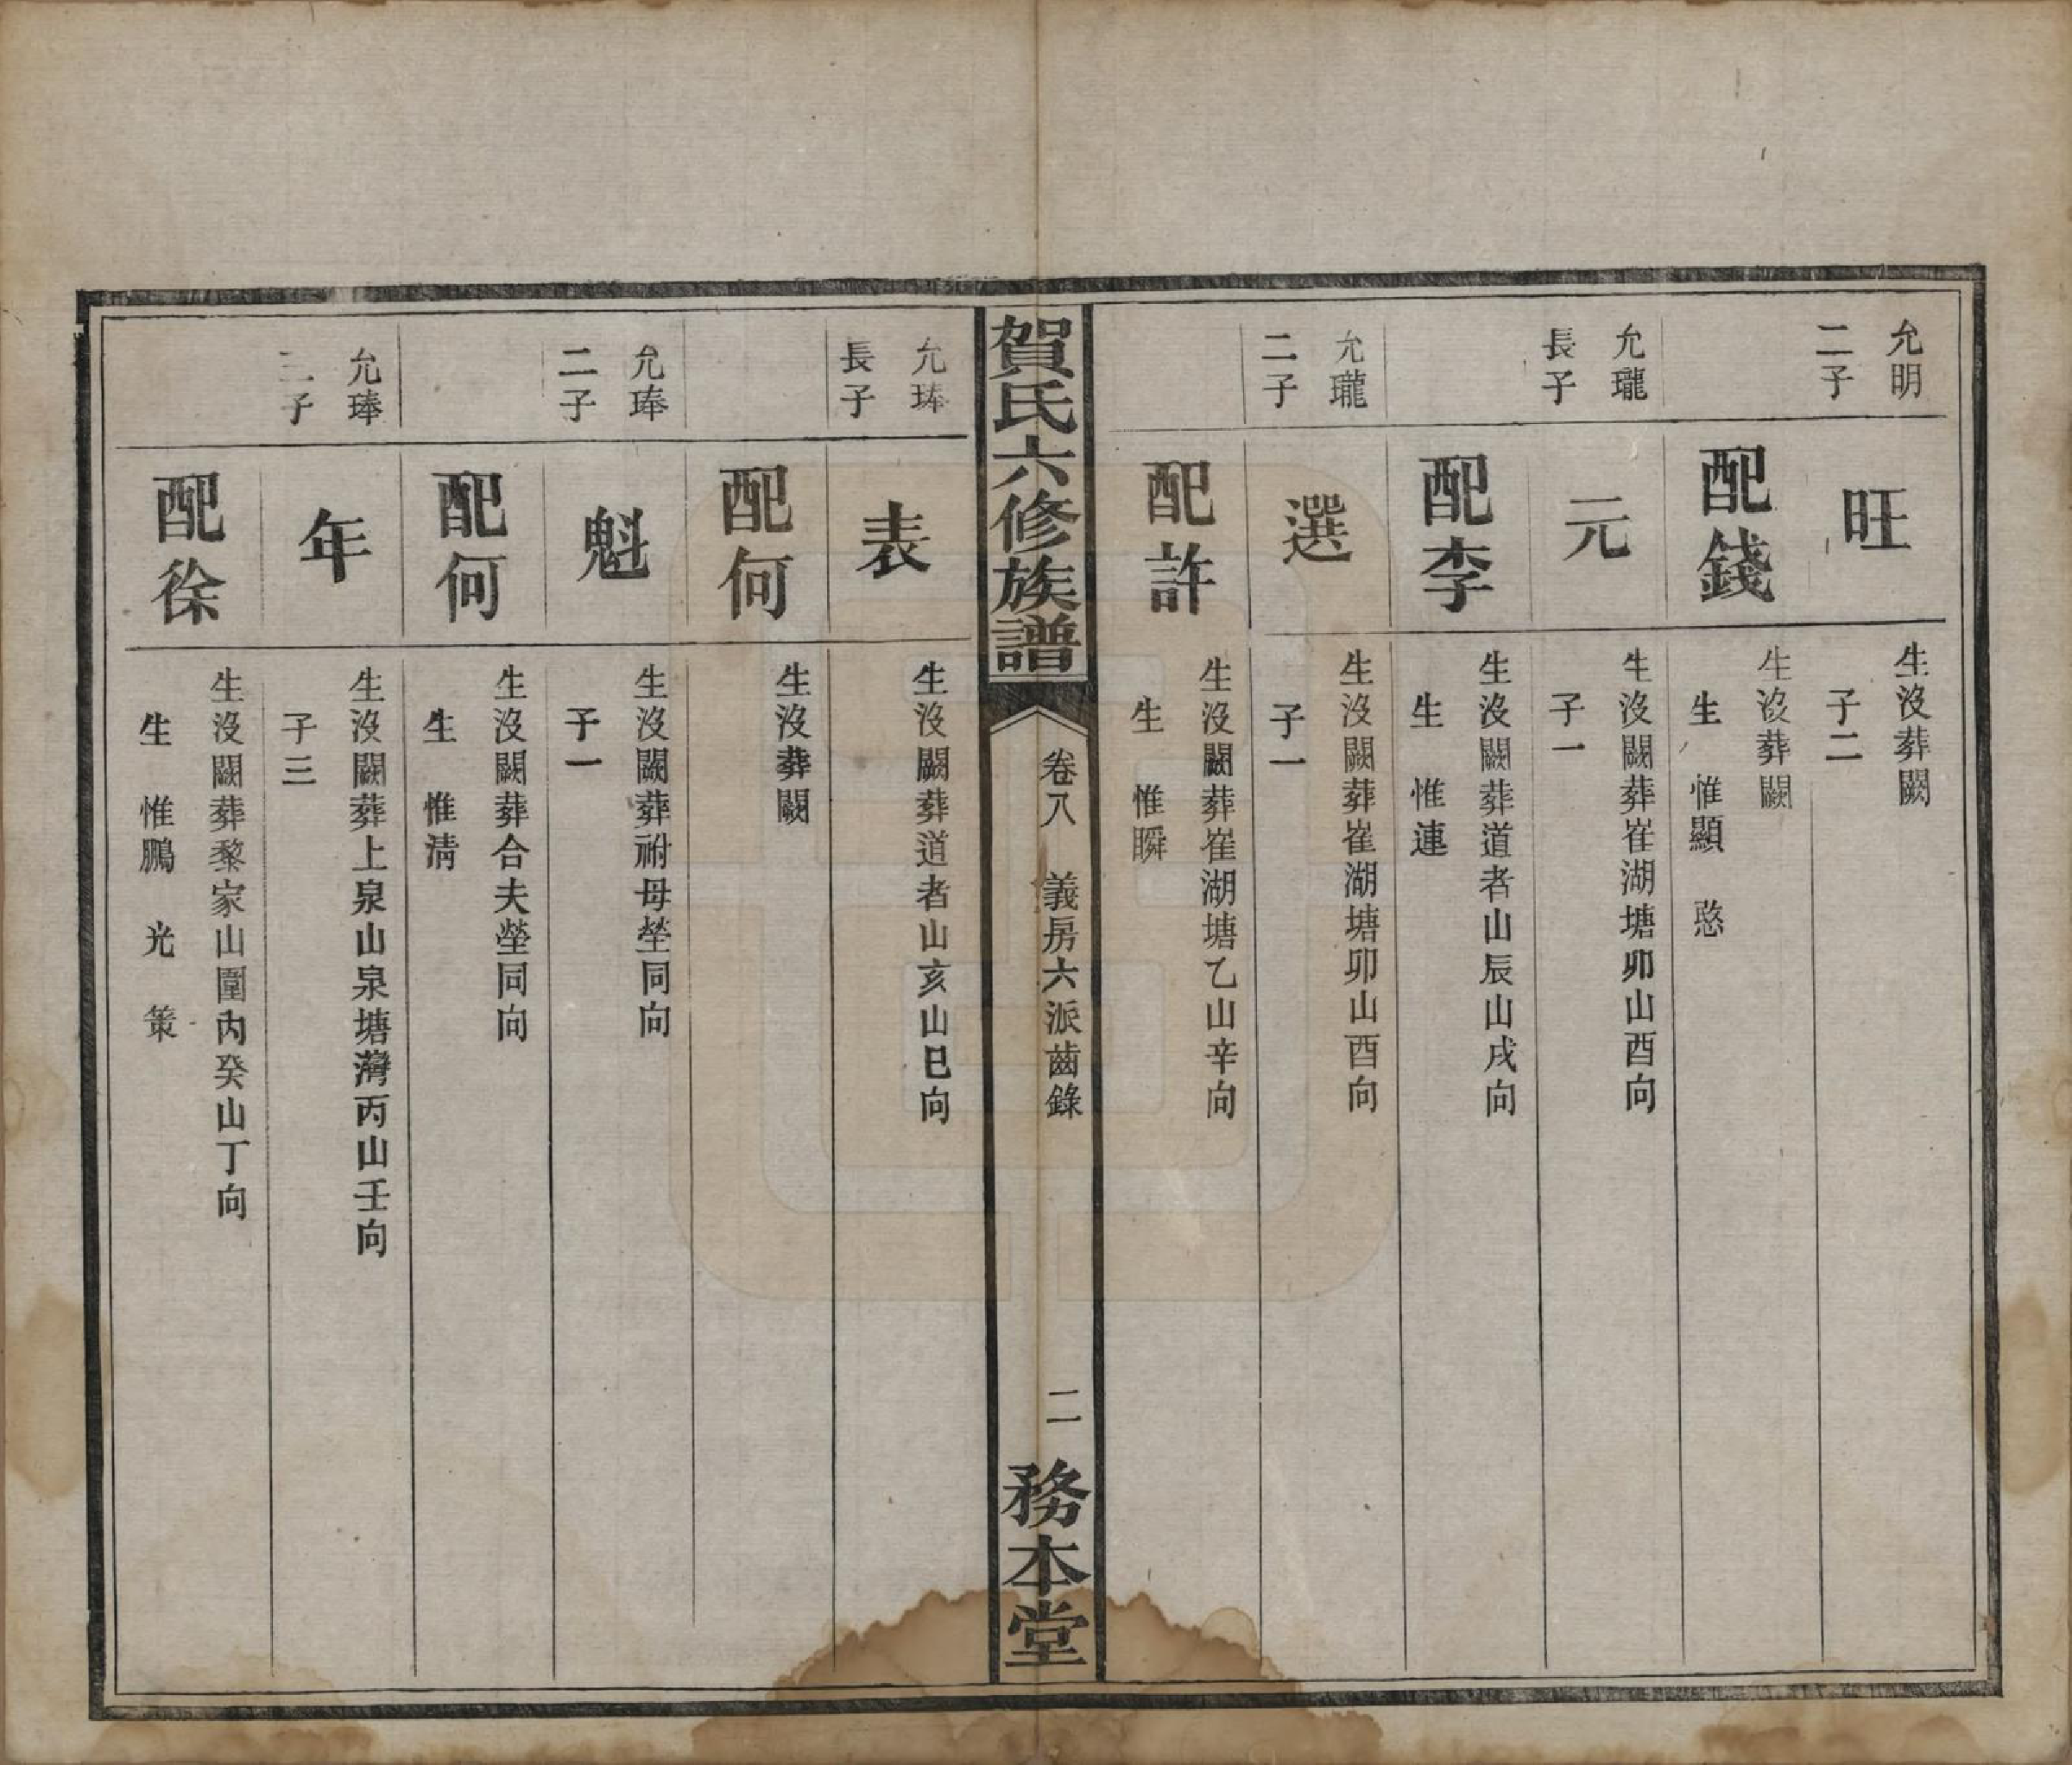 允明
二子
旺
生沒葬闕
子二
配錢
生沒葬闕
生　惟顯　愍
允瓏
長子
元
生沒闕葬崔湖塘卯山酉向
子一
配李
生沒闕葬道者山辰山戌向
生　惟連
允瓏
二子
選
生沒闕葬崔湖塘卯山酉向
子一
配許
生沒闕葬崔湖塘乙山辛向
生　惟瞬
賀氏六修族譜
卷八　義房六派齒錄
二
務本堂
允琫
長子
表
生沒闕葬道者山亥山巳向
配何
生沒葬闕
允琫
二子
魁
生沒闕葬祔母塋同向
子一
配何
生沒闕葬合夫塋同向
生　惟清
允琫
三子
年
生沒闕葬上泉山泉塘灣丙山壬向
子三
配徐
生沒闕葬黎家山圍內癸山丁向
生　惟鵬　光　策